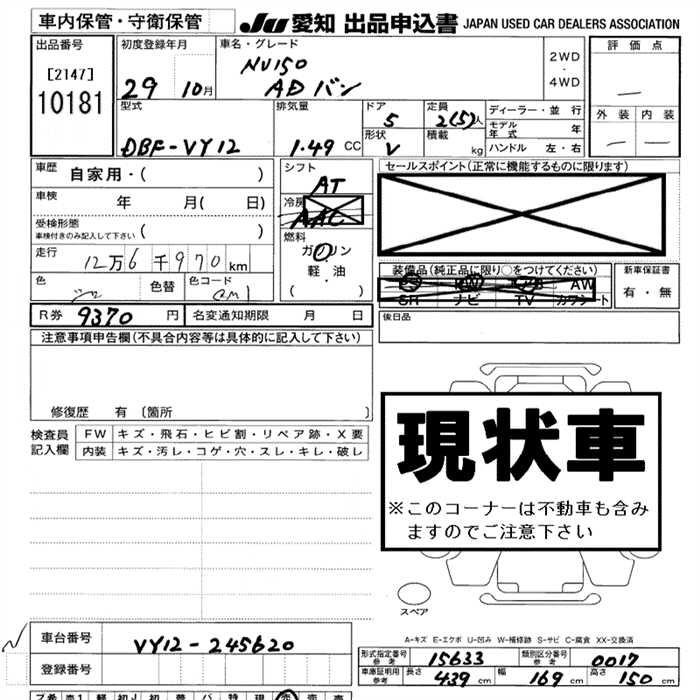 車内保管・守衛保管 JU 愛知 出品申込書 JAPAN USED CAR DEALERS ASSOCIATION
出品番号 初度登録年月 車名・グレード 2WD・4WD 評価点
[2147]
10181 29 10月 NV150
ADバン
型式 排気量 ドア 定員 ディーラー・並行 外装 内装
DBF-VY12 1.49 CC 5 2(5)人 モデル年式 年
形状 V 積載 kg ハンドル 左・右
車歴 自家用・( ) シフト AT セールスポイント(正常に機能するものに限ります)
車検 年 月( 日) 冷房 AAC
受検形態 車検付きのみ記入して下さい ( ) 燃料
走行 12万6千970km ガソリン・軽油・( ) 装備品(純正品に限り○をつけてください) 新車保証書
PS PW AW 有・無
SR ナビ TV カワシート
色 色替 色コード
R券 9370円 名変通知期限 月 日 後日品
注意事項申告欄(不具合内容等は具体的に記入して下さい)
修復歴 有 [箇所 ]
検査員記入欄 FW キズ・飛石・ヒビ割・リペア跡・X要
内装 キズ・汚レ・コゲ・穴・スレ・キレ・破レ
現状車
※このコーナーは不動車も含み
ますのでご注意下さい
スペア
A-キズ E-エクボ U-凹み W-補修跡 S-サビ C-腐食 XX-交換済
車台番号 VY12-245620
登録番号
形式指定番号 参考 15633 類別区分番号 参考 0017
車庫証明用 参考 長さ 439cm 幅 169cm 高さ 150cm